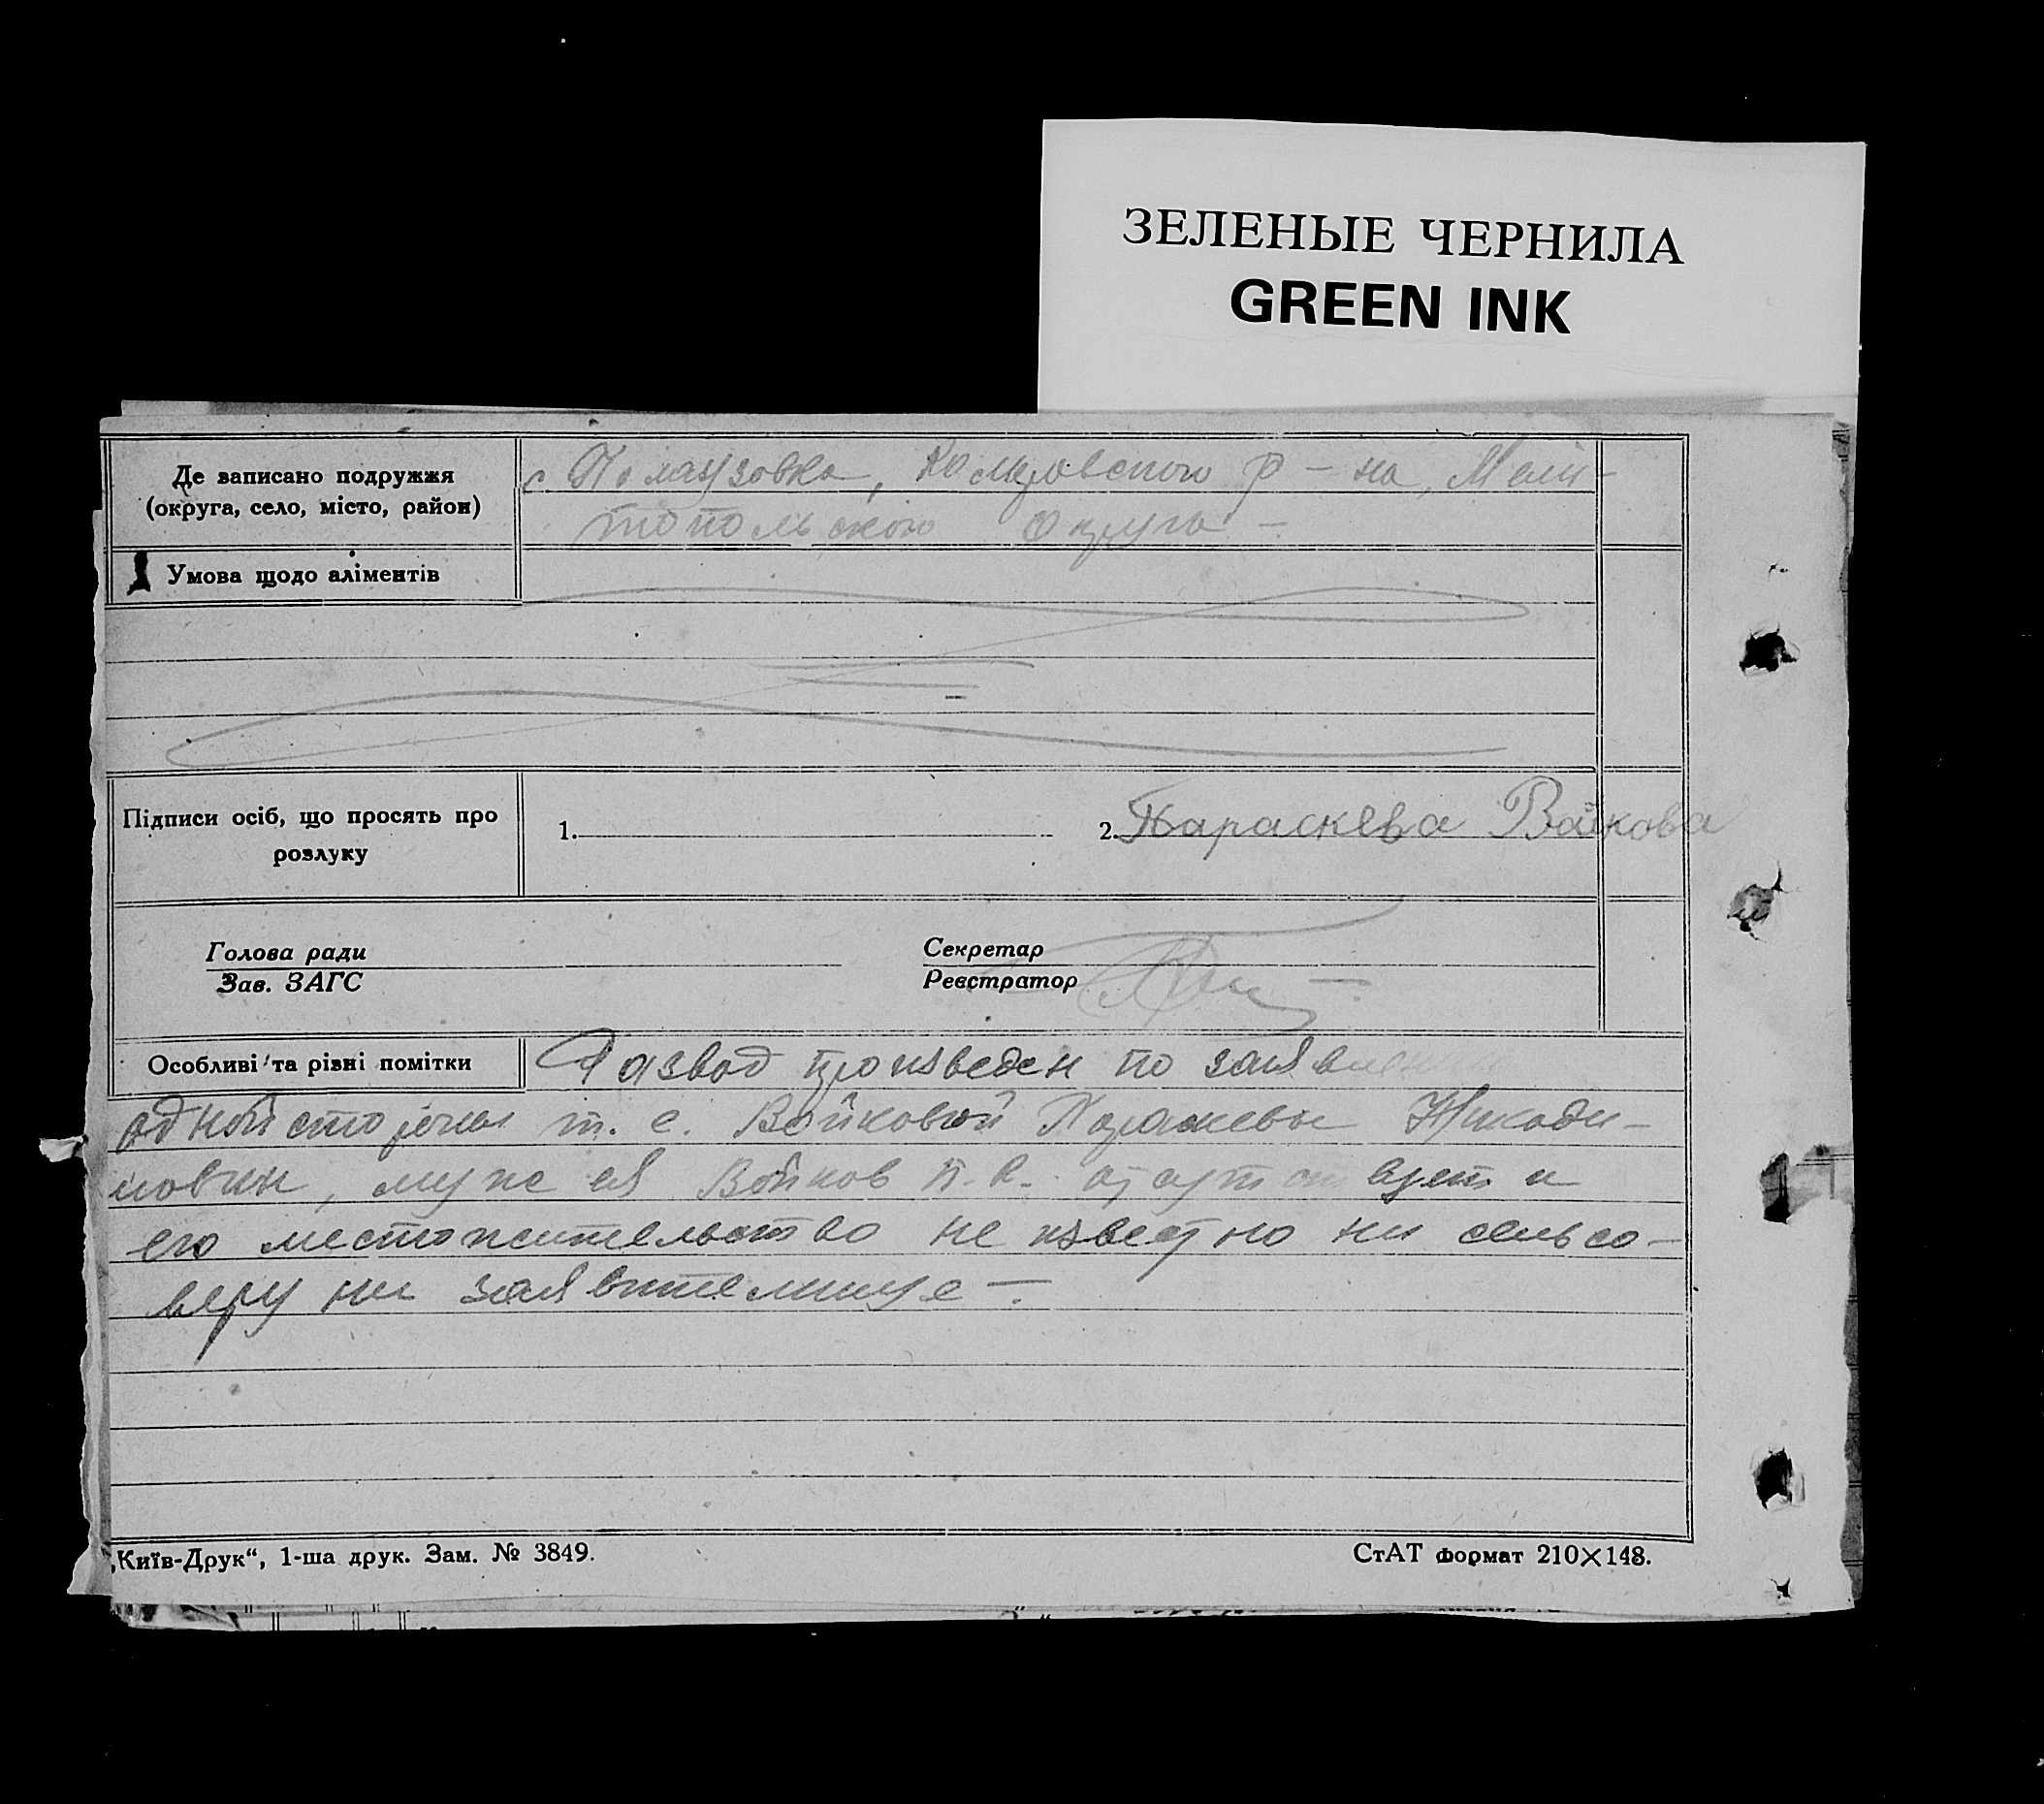 ЗЕЛЕНЫЕ ЧЕРНИЛА
GREEN INK
Де записано подружжя
(округа, село, місто, район)
с. р-на, Мели-
топольского округа -
Умова щодо аліментів
Підписи осіб, що просять про
розлуку
1.
2. Параскева Войкова
Голова ради
Зав. ЗАГС
Секретар
Реєстратор
Особливі та різні помітки
Развод произведен по заявлению
одной стороны т. е. Войковой
муж ея Войков П. отсутствует и
его местожительство не известно ни сельсо-
вету ни заявительнице -.
„Київ-Друк“, 1-ша друк. Зам. № 3849.
СтАТ формат 210×148.